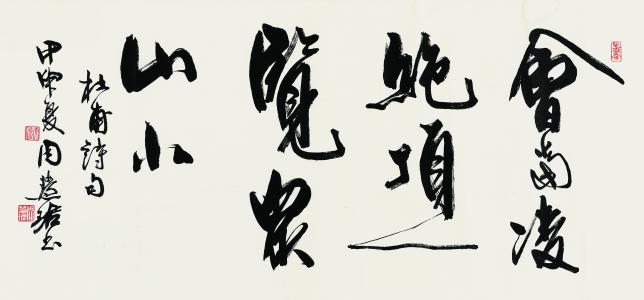 會當凌
絶頂一
覽眾
山小
杜甫詩句
甲申夏周慧珺書